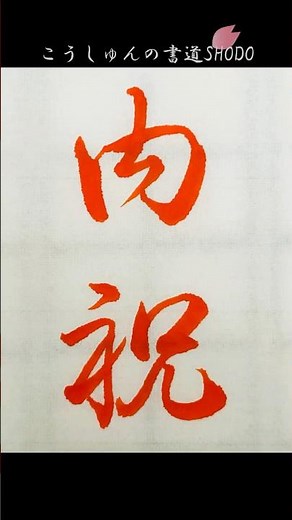 こうしゅんの書道SHODO
内祝